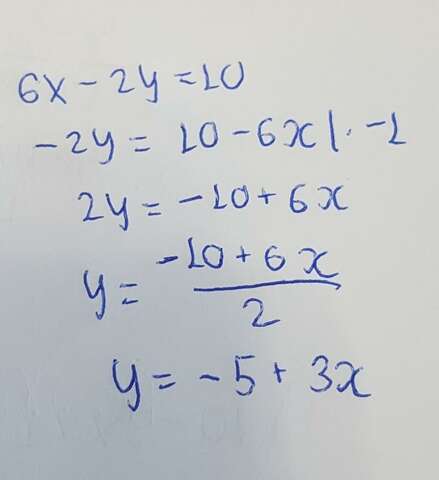 6x - 2y = 10
-2y = 10 - 6x | · -1
2y = -10 + 6x
y = -10 + 6x / 2
y = -5 + 3x